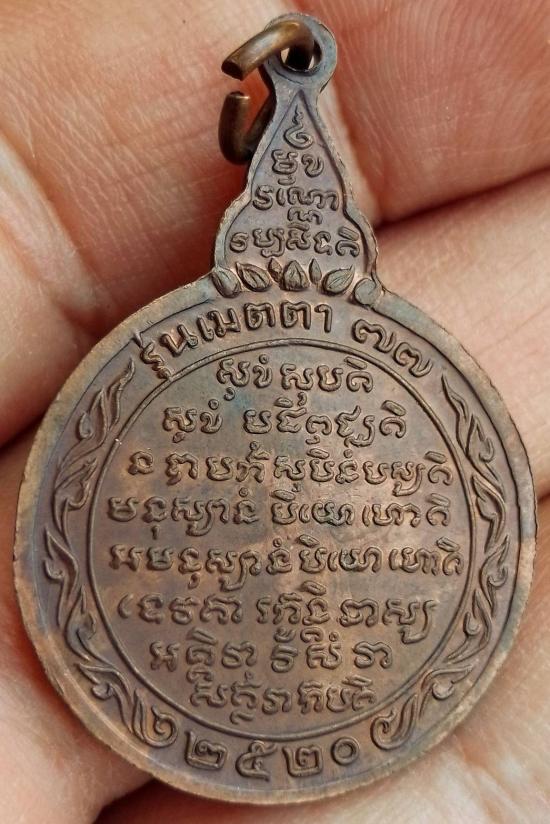 មុខ
វណ្ណោ
វិប្បសីទតិ
รุ่นเมตตา ๗๗
សុខំ សុបតិ
សុខំ បដិពុជ្ឈតិ
ន បាបកំ សុបិនំ បស្សតិ
មនុស្សានំ បិយោ ហោតិ
អមនុស្សានំ បិយោ ហោតិ
ទេវតា រក្ខន្តិ នាស្ស
អគ្គិ វា វិសំ វា
សត្ថំ វា កមតិ
๒๕๒๐